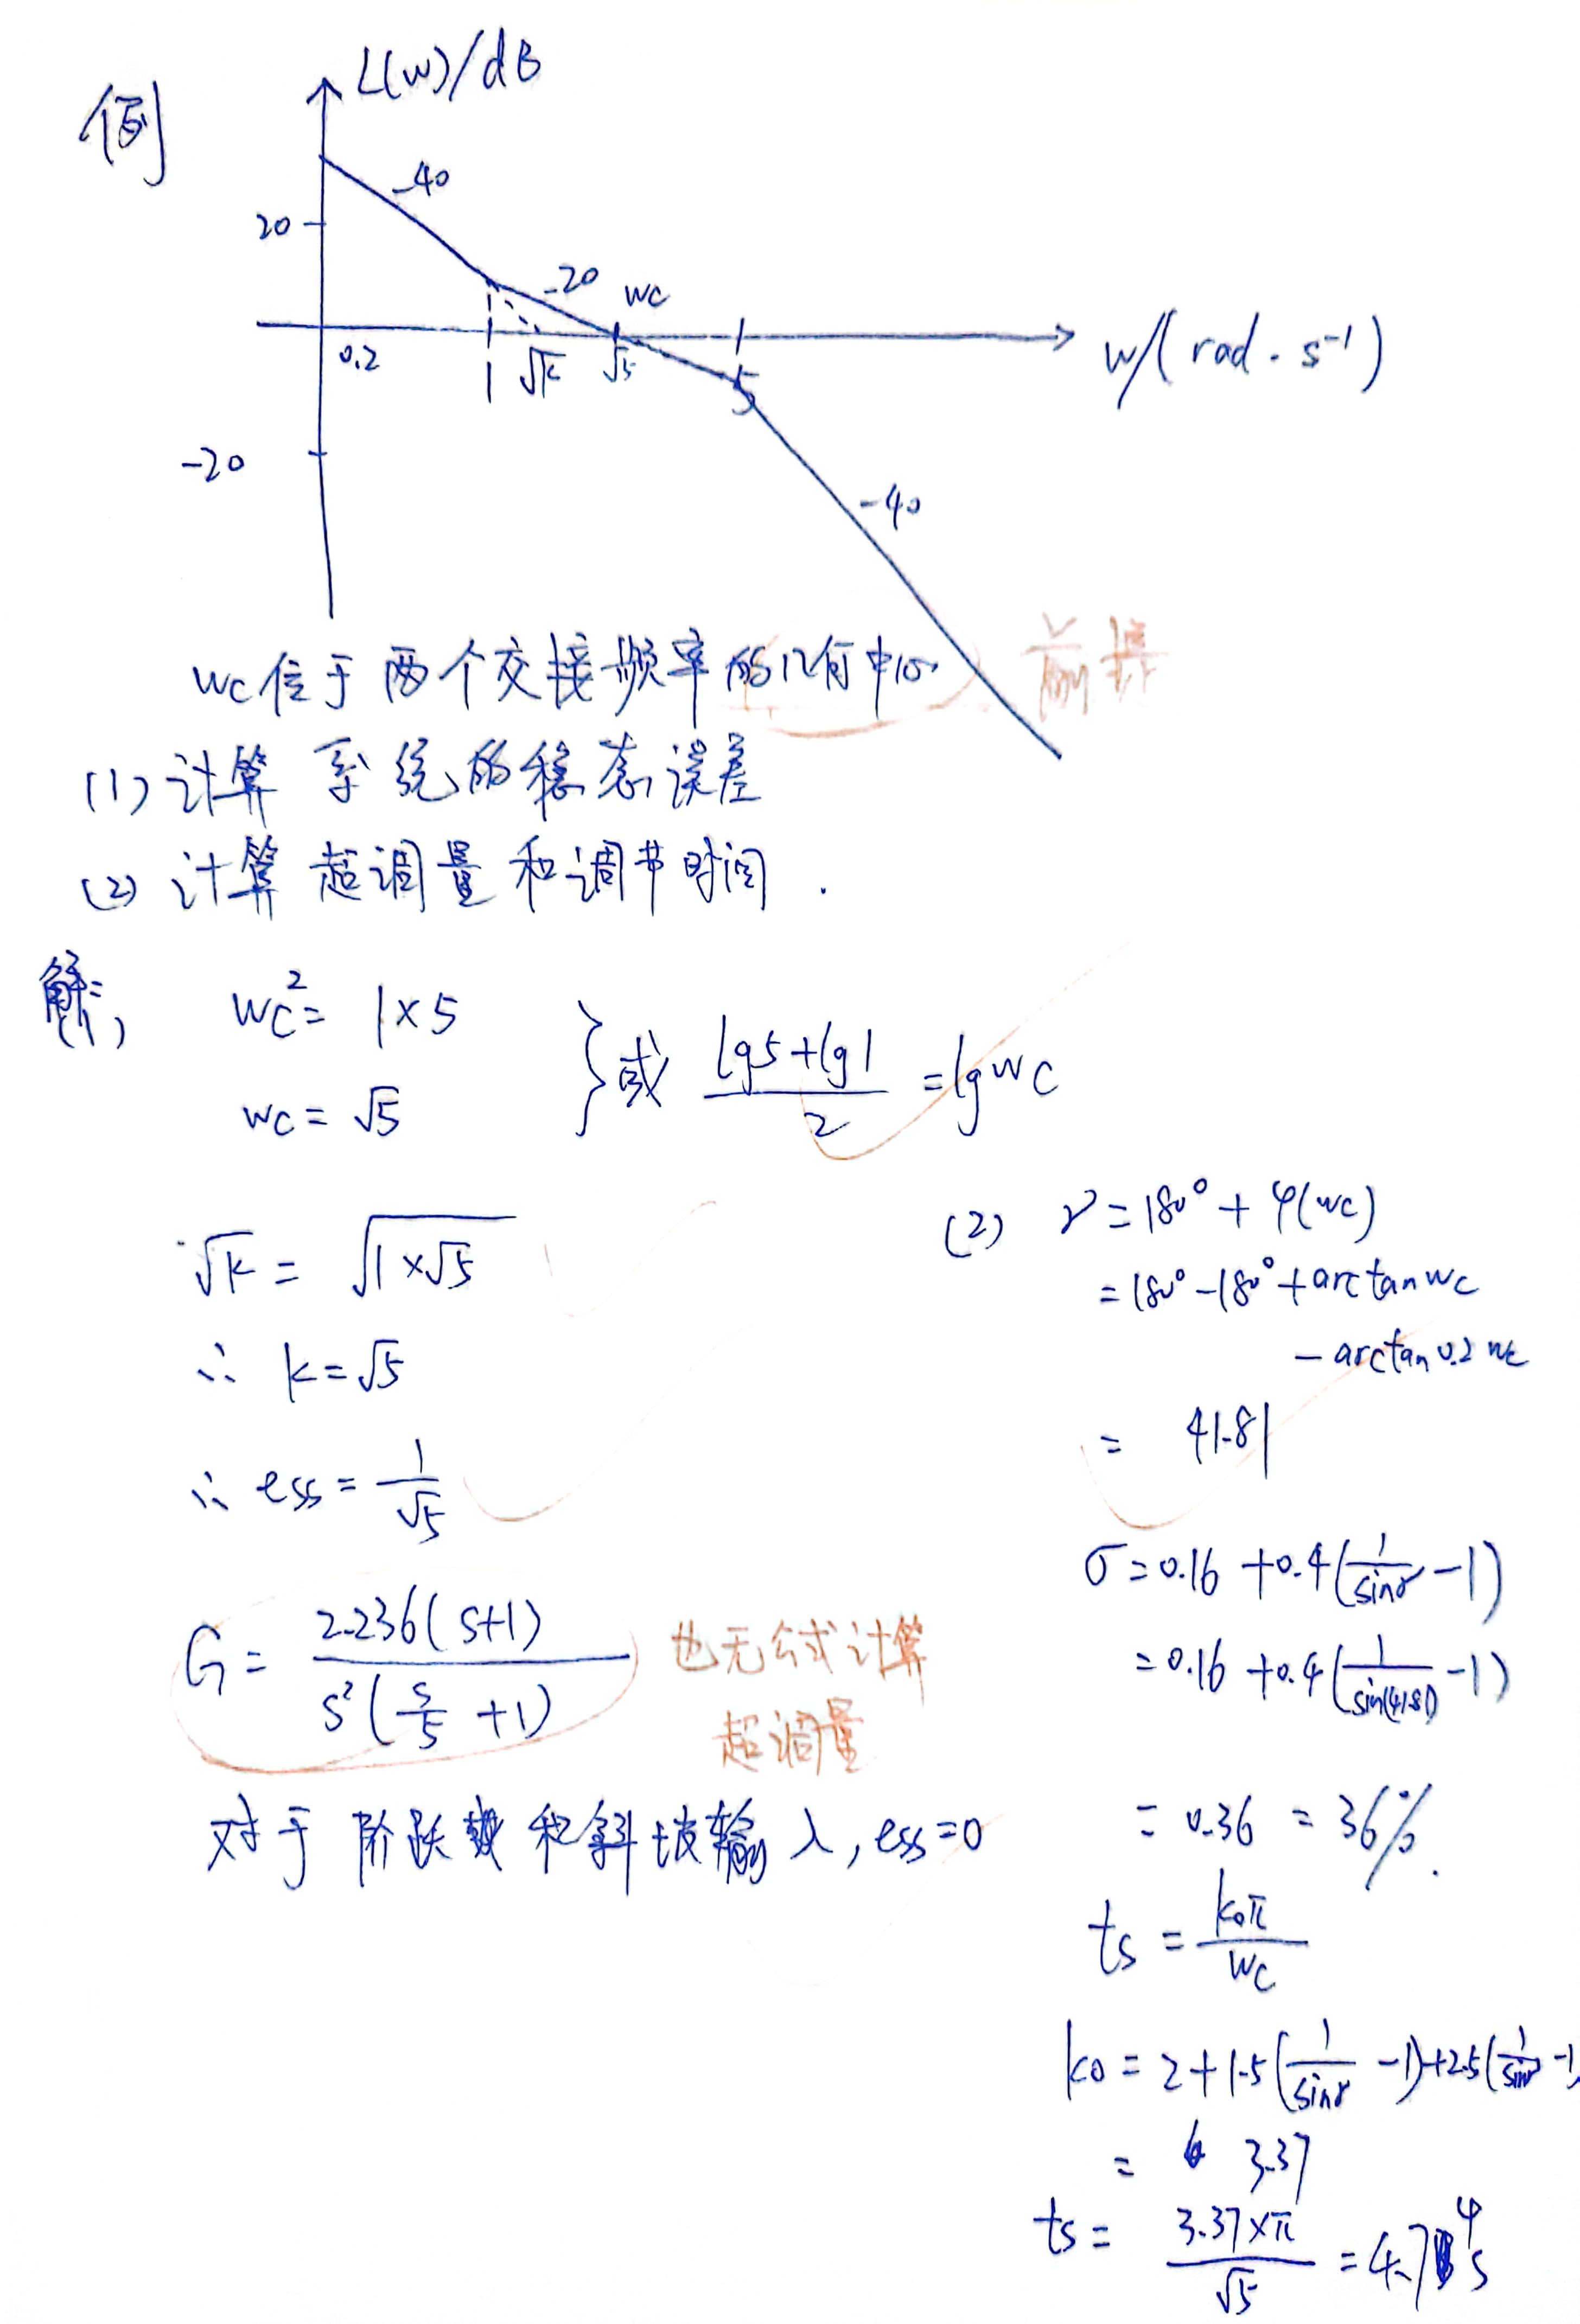 例
L(w)/dB
-40
20
-20
wc
0.2
1
√k
√5
5
w/(rad·s⁻¹)
-20
-40
wc位于两个交接频率的几何中心
(1) 计算系统的稳态误差
(2) 计算超调量和调节时间.
解:
(1) wc² = 1×5
wc = √5
} 或 (lg5+lg1)/2 = lgwc
√k = √(1×√5)
∴ k=√5
∴ ess = 1/√5
G = 2.236(s+1) / s²(s/5 +1)
也无公式计算
超调量
对于阶跃和斜坡输入, ess=0
(2) γ = 180° + φ(wc)
= 180° - 180° + arctanwc
- arctan0.2wc
= 41.81
σ = 0.16 + 0.4(1/sinγ - 1)
= 0.16 + 0.4(1/sin(41.81) - 1)
= 0.36 = 36%.
ts = k₀π/wc
k₀ = 2 + 1.5(1/sinγ - 1) + 2.5(1/sinγ - 1)
= 3.37
ts = 3.37×π/√5 = 4.74s